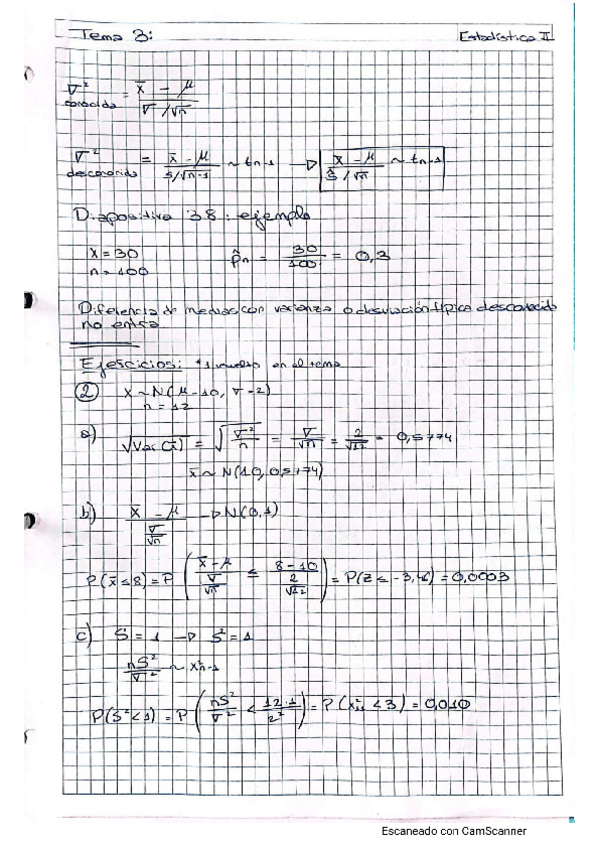 Tema 3:
Estadística II
∇² conocida = x̄ - μ / ∇/√n
∇² desconocida = x̄ - μ / s/√n-1 ~ tn-1 → x̄ - μ / ŝ/√n ~ tn-1
Diapositiva 38: ejemplo
x = 30
n = 100
p̂n = 30/100 = 0,3
Diferencia de medias con varianza o desviación típica desconocida
no entra
Ejercicios: *1 resuelto en el tema
② x ~ N(μ = 10, ∇ = 2)
n = 12
a) √Var(x̄) = √∇²/n = ∇/√n = 2/√12 = 0,5774
x̄ ~ N(10, 0,5774)
b) x̄ - μ / ∇/√n → N(0,1)
P(x̄ ≤ 8) = P( x̄ - μ / ∇/√n ≤ 8 - 10 / 2/√12 ) = P(Z ≤ -3,46) = 0,0003
c) S = 1 → S² = 1
nS²/∇² ~ x²n-1
P(S² < 1) = P( nS²/∇² < 12·1/2² ) = P(x²11 < 3) = 0,010
Escaneado con CamScanner